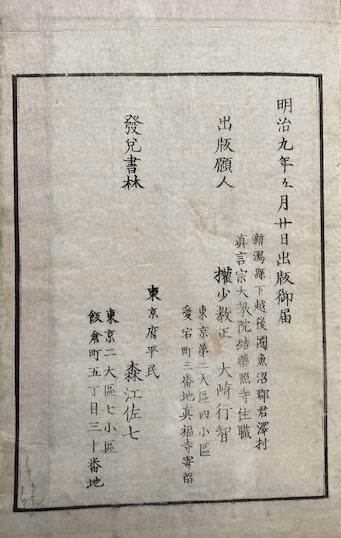 明治九年五月廿日出版御届
新潟縣下越後國魚沼郡君澤村
真言宗大教院結藥照寺住職
出版願人 權少教正 大崎行智
東京第二大區四小區
愛宕町三番地真福寺寄留
發兌書林
東京府平民
森江佐七
東京二大區七小區
飯倉町五丁目三十番地